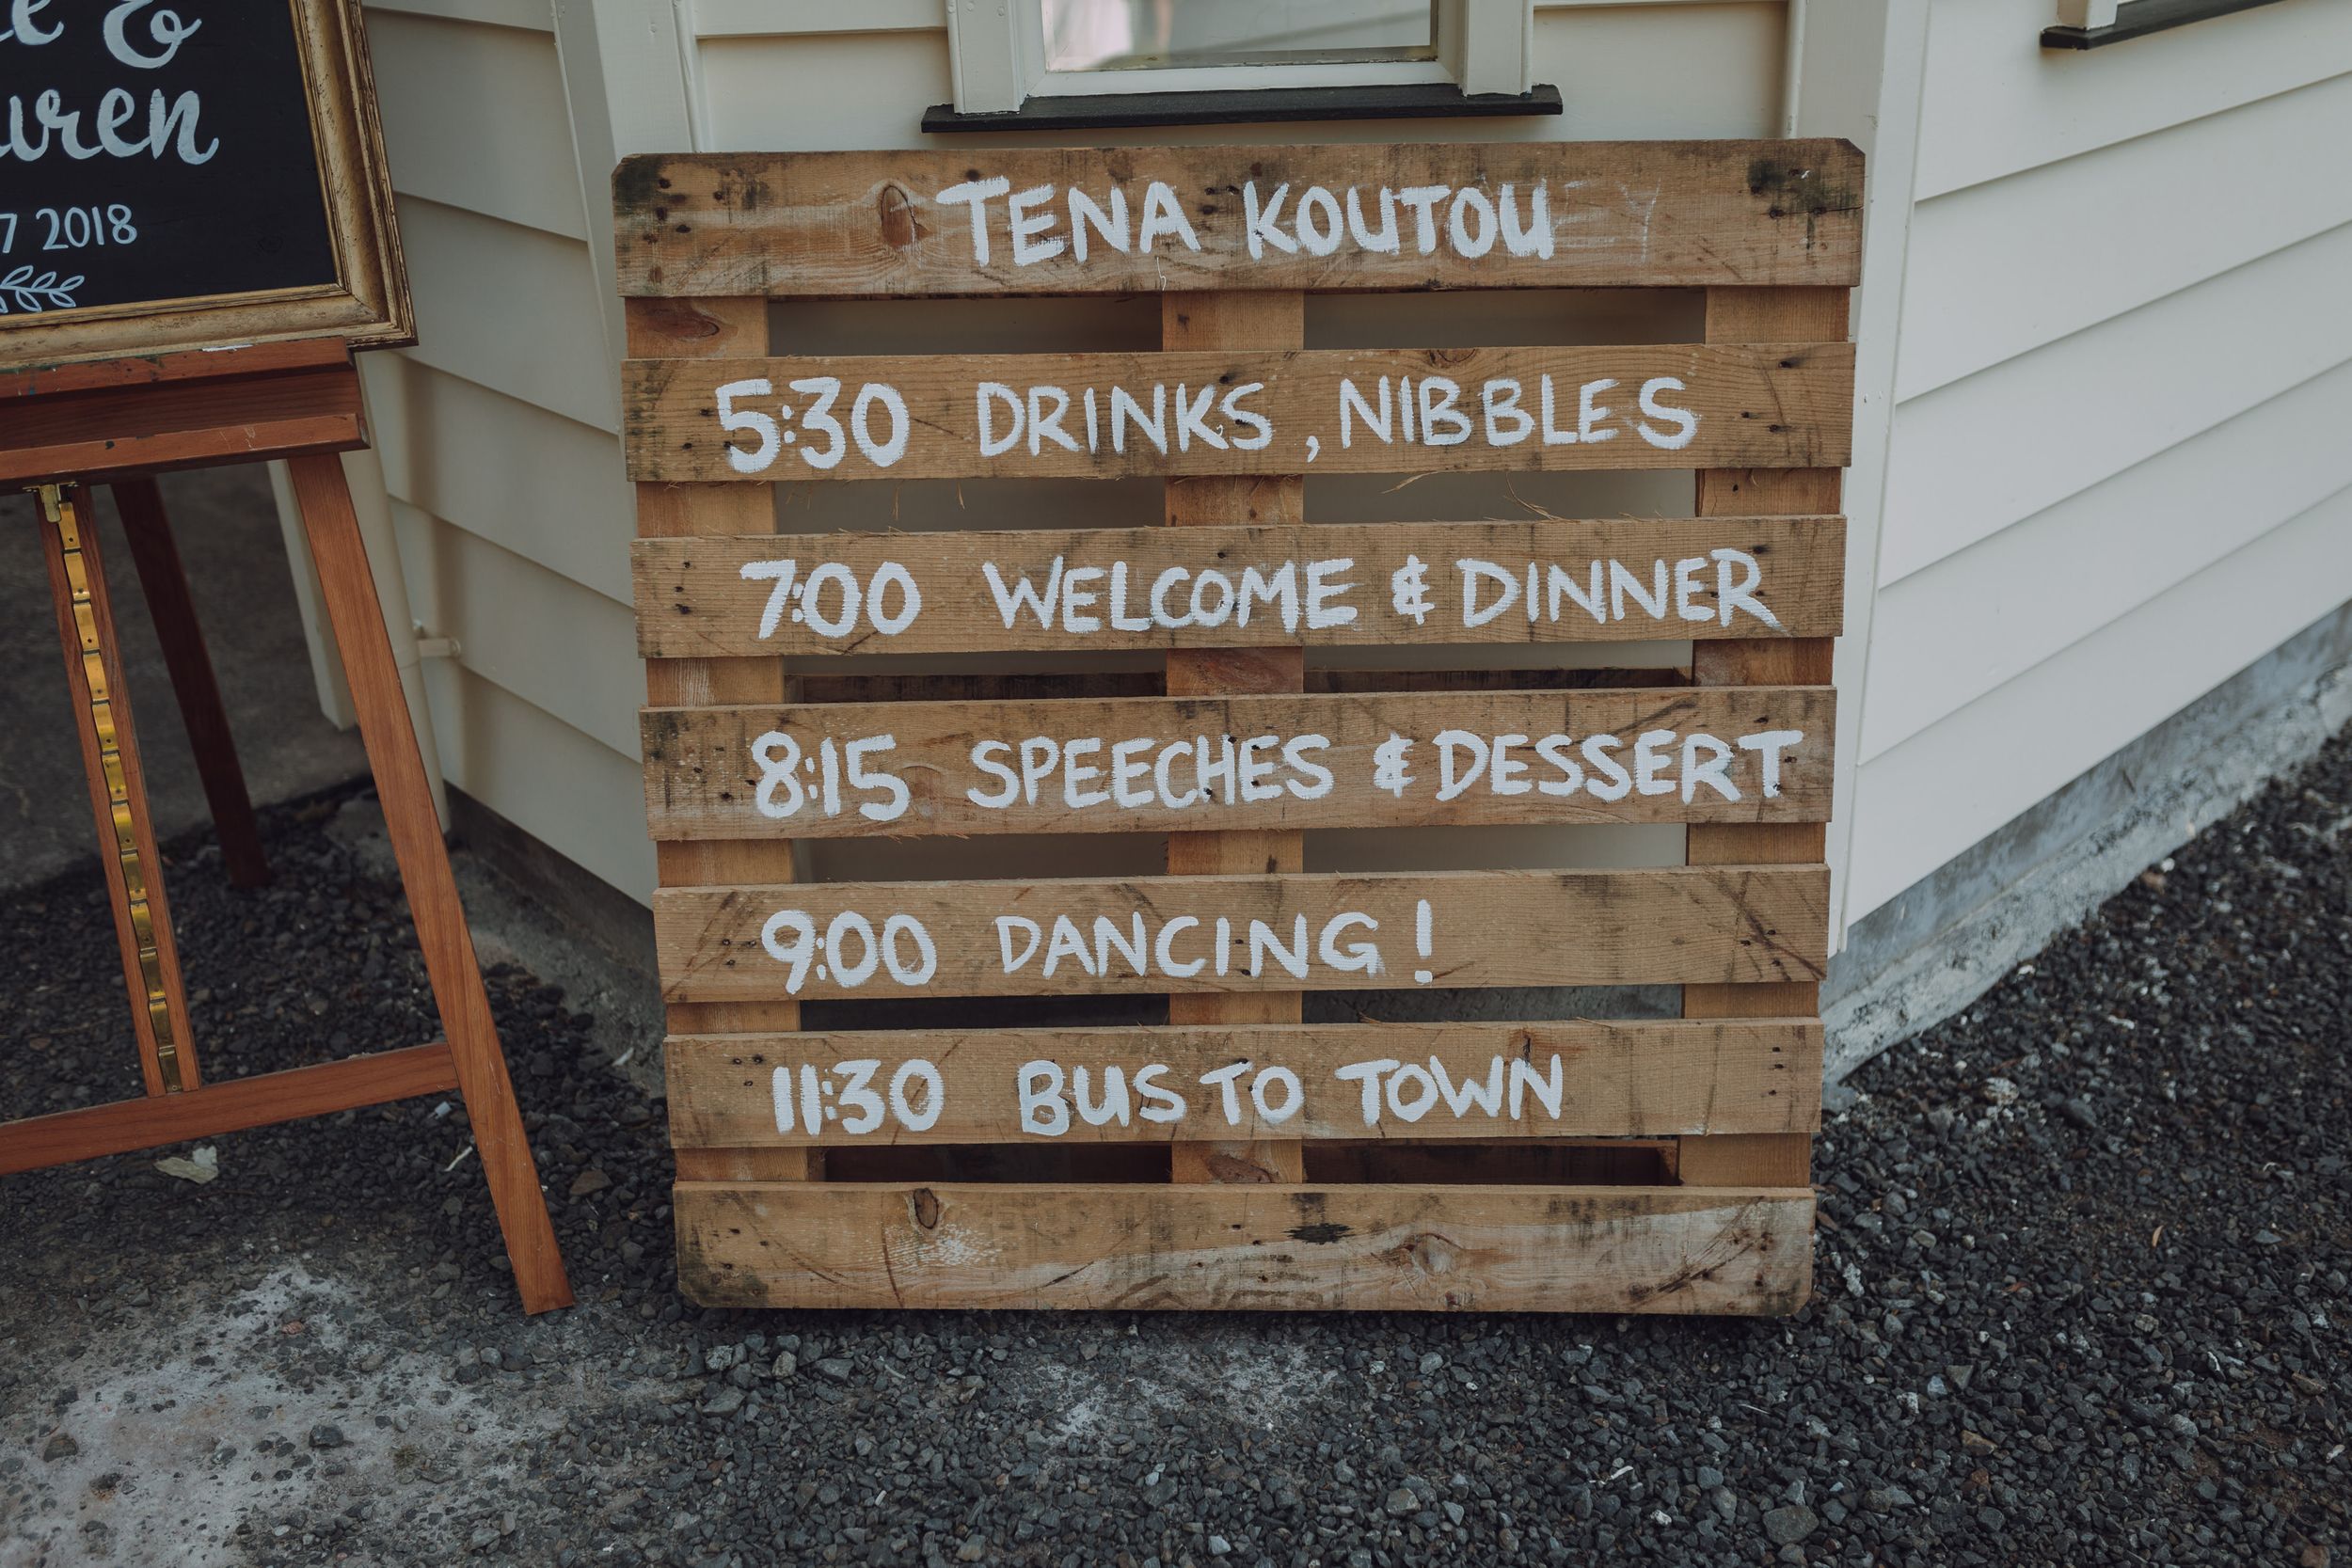 &
7 2018
TENA KOUTOU
5:30 DRINKS, NIBBLES
7:00 WELCOME & DINNER
8:15 SPEECHES & DESSERT
9:00 DANCING!
11:30 BUS TO TOWN